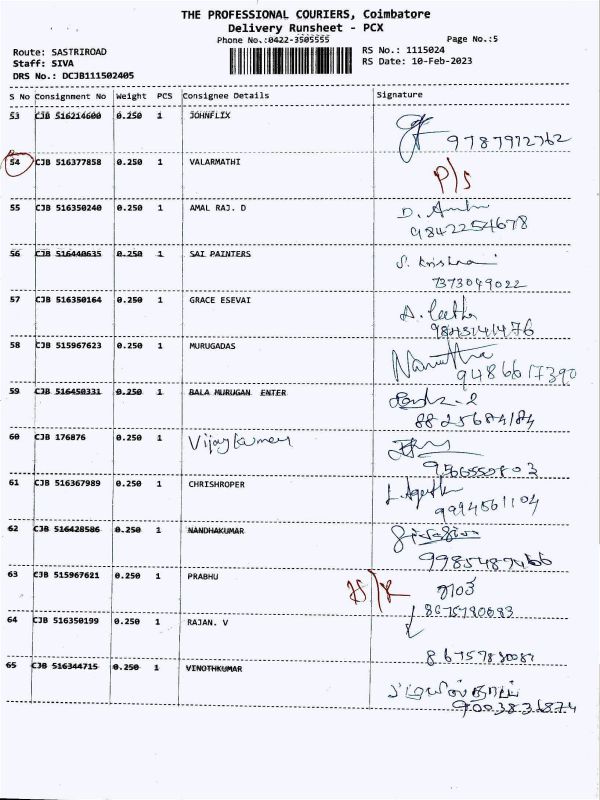 THE PROFESSIONAL COURIERS, Coimbatore
Delivery Runsheet - PCX
Phone No.:0422-3505555
Page No.:5
Route: SASTRIROAD
Staff: SIVA
DRS No.: DCJB111502405
RS No.: 1115024
RS Date: 10-Feb-2023
S No Consignment No Weight PCS Consignee Details Signature
53 CJB 516214600 0.250 1 JOHNFLIX
9787912762
54 CJB 516377858 0.250 1 VALARMATHI
P/S
55 CJB 516350240 0.250 1 AMAL RAJ. D
9842254678
56 CJB 516440635 0.250 1 SAI PAINTERS
7373049022
57 CJB 516350164 0.250 1 GRACE ESEVAI
A. Geetha
58 CJB 515967623 0.250 1 MURUGADAS
9486617390
59 CJB 516450331 0.250 1 BALA MURUGAN ENTER
8825684184
60 CJB 176876 0.250 1 Vijaykumar
61 CJB 516367989 0.250 1 CHRISHROPER
9994561104
62 CJB 516428586 0.250 1 NANDHAKUMAR
63 CJB 515967621 0.250 1 PRABHU
64 CJB 516350199 0.250 1 RAJAN. V
65 CJB 516344715 0.250 1 VINOTHKUMAR